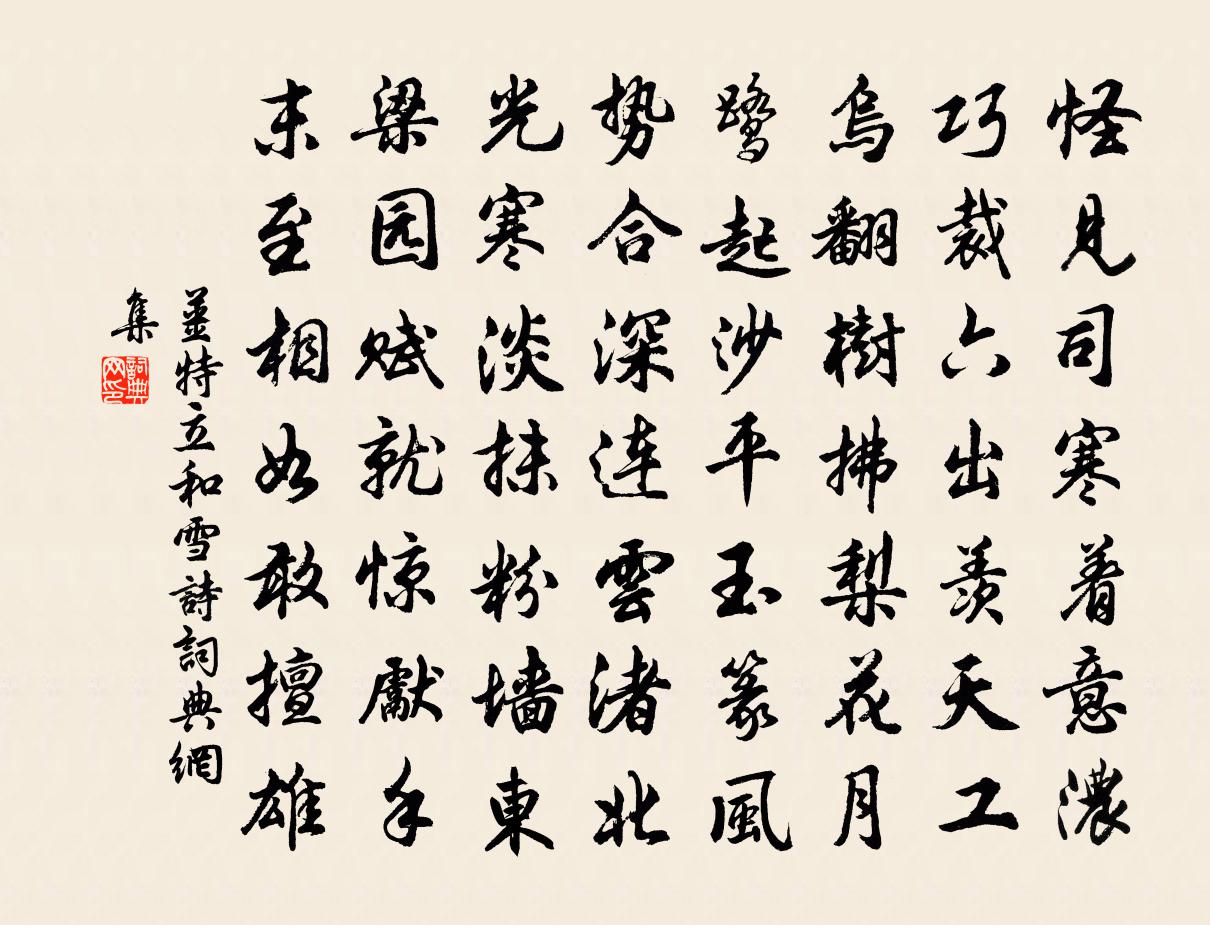 怪見司寒着意濃
巧裁六出羨天工
烏翻樹拂梨花月
鷺起沙平玉篆風
勢合深連雲渚北
光寒淡抹粉墙東
梁园赋就惊獻手
末至相如敢擅雄
董特立和雪詩詞典網
集
詞典
网印